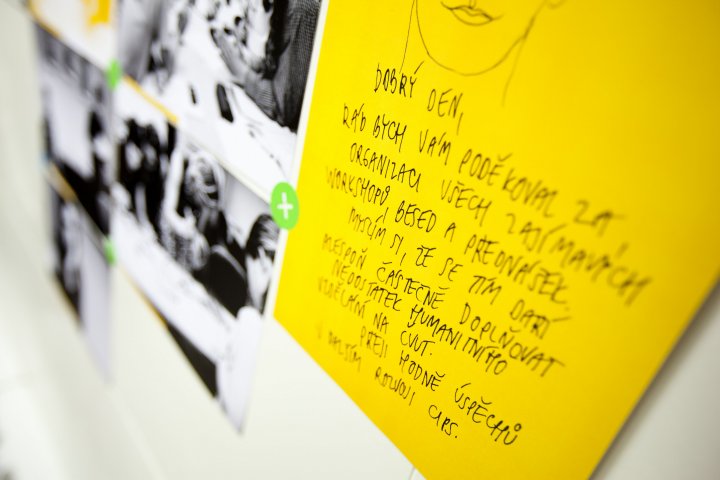 DOBRÝ DEN,
RÁD BYCH VÁM PODĚKOVAL ZA
ORGANIZACI VŠECH ZAJÍMAVÝCH
WORKSHOPŮ BESED A PŘEDNÁŠEK.
MYSLÍM SI, ŽE SE TÍM DAŘÍ
ALESPOŇ ČÁSTEČNĚ DOPLŇOVAT
NEDOSTATEK HUMANITNÍHO
VZDĚLÁNÍ NA ČVUT.
PŘEJI HODNĚ ÚSPĚCHŮ
V DALŠÍM ROZVOJI CIPS.